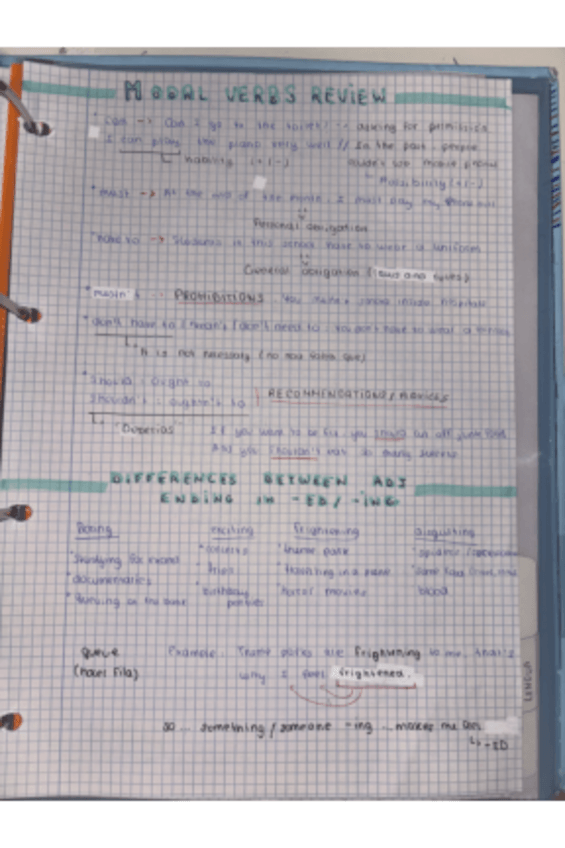 MODAL VERBS REVIEW
* Can -> Can I go to the toilet? -- asking for permission
I can play the piano very well // In the past, people
ability (+ / -)
Possibility (+ / -)
* must -> At the end of the month, I must pay my phone bill
Personal obligation
* have to -> Students in this school have to wear a uniform
General obligation (laws and rules)
* mustn't -- PROHIBITIONS You mustn't smoke inside hospitals
* don't have to / needn't / don't need to : You don't have to wear a
It is not necessary (no hace falta que)
* Should : ought to
Shouldn't : oughtn't to
RECOMMENDATIONS / ADVICES
"Deberías"
If you want to be fit, you should cut off junk food
and you shouldn't eat so many
DIFFERENCES BETWEEN ADJ
ENDING IN -ED / -ING
Boring exciting frightening disgusting
* studying for exams * concerts * theme park * spiders
* documentaries * trips * travelling in a plane * some
* queuing in the * birthday parties * horror movies blood
queue Example: Theme parks are frightening to me, that's
(hacer fila) why I feel frightened.
so ... something / someone -ing ... makes me feel
-ED